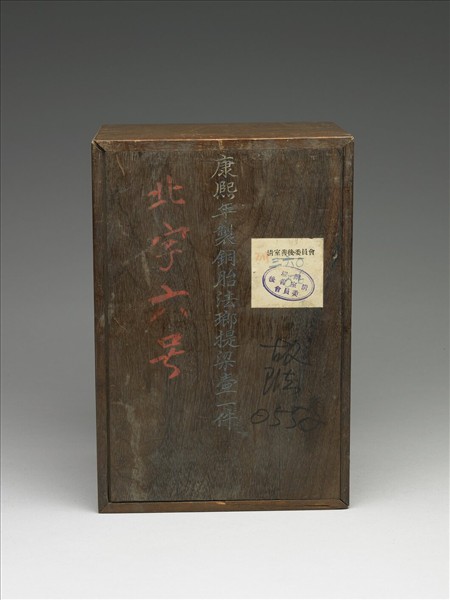 清室善後委員會
故琺
0550
康熙年製銅胎法瑯提梁壺一件
北字六号